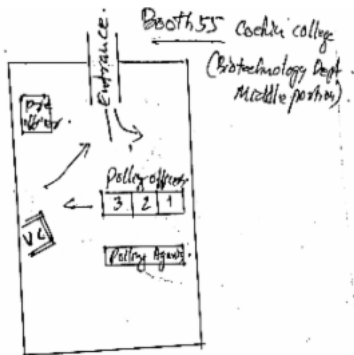 Booth 55 Cochin college
(Biotechnology Dept
Middle portion)
Entrance.
Pre
officer.
Polling officers
3 2 1
VC
Polling Agents